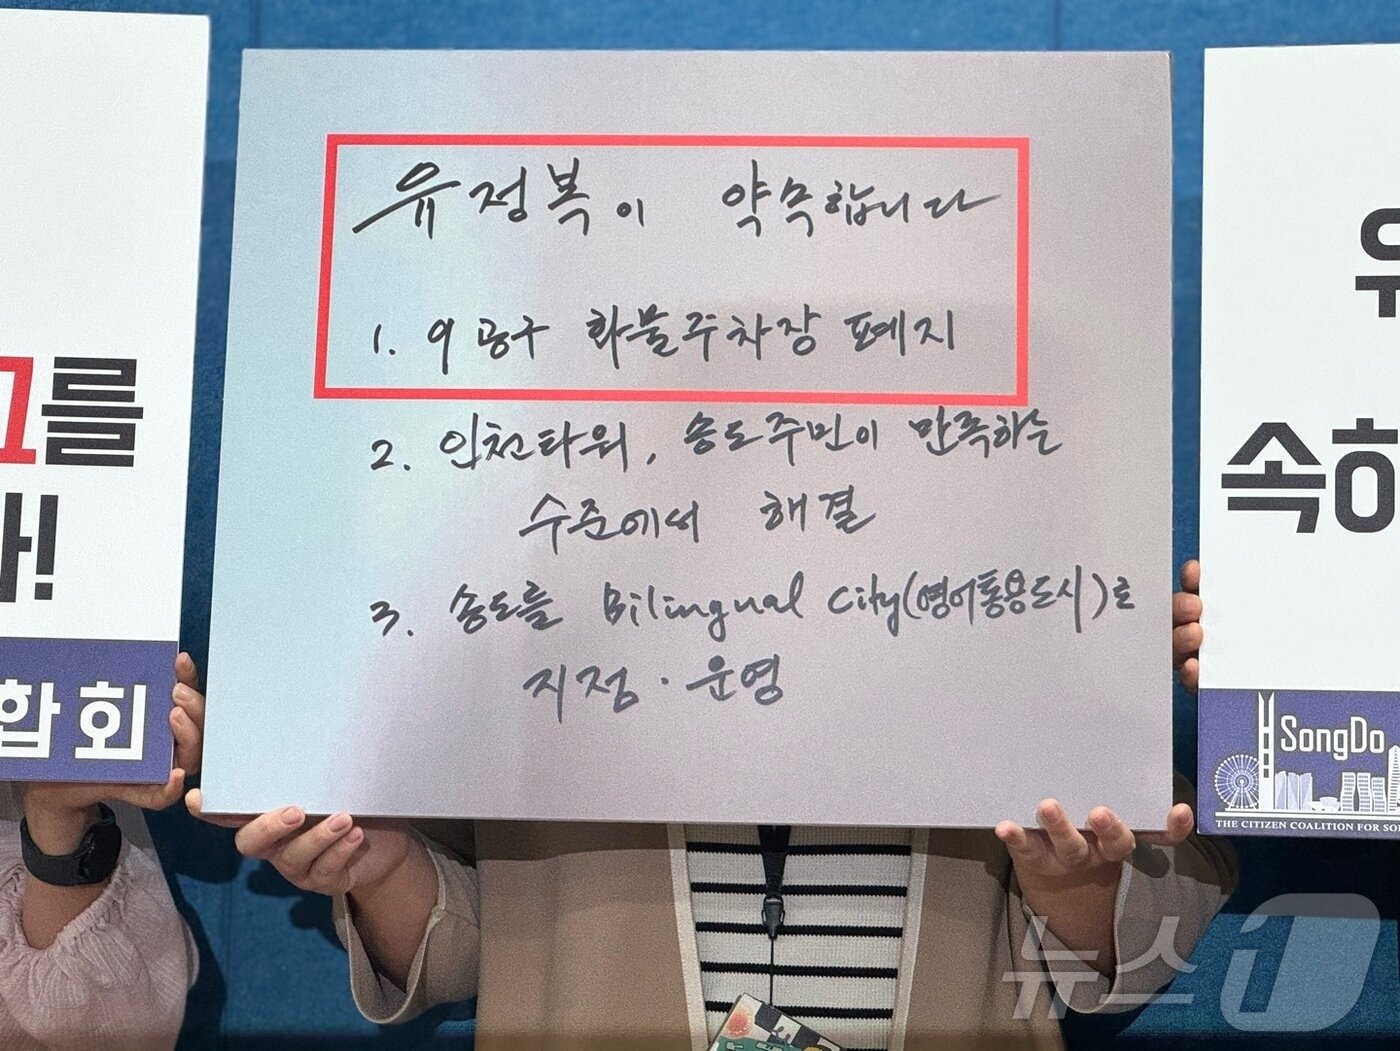 유정복이 약속합니다
1. 9공구 화물주차장 폐지
2. 인천타워, 송도주민이 만족하는
수준에서 해결
3. 송도를 Bilingual City(영어통용도시)로
지정·운영
1를
!
합회
속하
SongDo
THE CITIZEN COALITION FOR SO
뉴스1